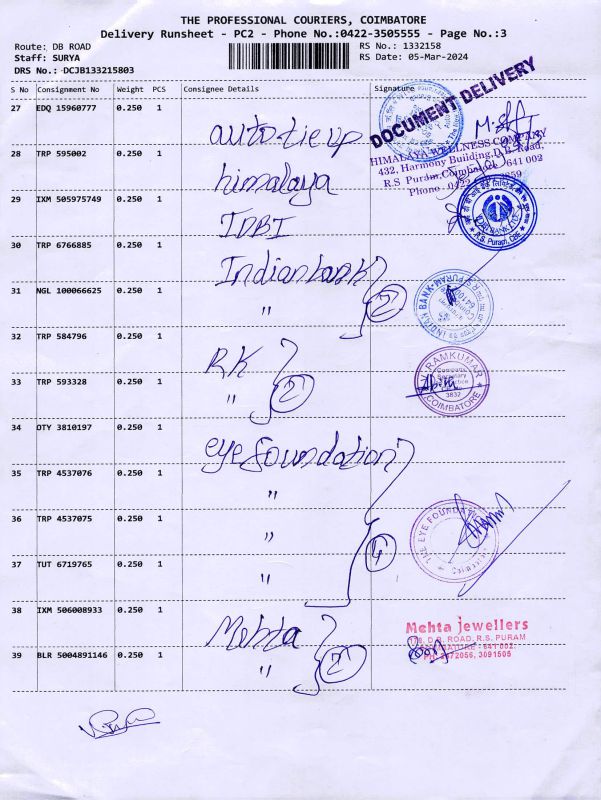 THE PROFESSIONAL COURIERS, COIMBATORE
Delivery Runsheet - PC2 - Phone No.:0422-3505555 - Page No.:3
Route: DB ROAD
Staff: SURYA
DRS No.: DCJB133215803
RS No.: 1332158
RS Date: 05-Mar-2024
S No Consignment No Weight PCS Consignee Details Signature
27 EDQ 15960777 0.250 1 auto tie up
DOCUMENT DELIVERY
28 TRP 595002 0.250 1 himalaya
HIMALAYA WELLNESS COMPANY
432, Harmony Building, D.B. Road,
R.S Puram, Coimbatore 641 002
Phone 0422
29 IXM 505975749 0.250 1 IDBI
R.S. Puram, Cbe
30 TRP 6766885 0.250 1 Indian bank
31 NGL 100066625 0.250 1 " 2
INDIAN BANK R.S PURAM
32 TRP 584796 0.250 1 RK
33 TRP 593328 0.250 1 " 2
V. RAMKUMAR
Company
Secretary
3832
COIMBATORE
34 OTY 3810197 0.250 1 eye foundation
35 TRP 4537076 0.250 1 "
36 TRP 4537075 0.250 1 "
37 TUT 6719765 0.250 1 " 4
THE EYE FOUNDATION
Coimbatore
38 IXM 506008933 0.250 1 Mehta
39 BLR 5004891146 0.250 1 " 2
Mehta jewellers
D.B. ROAD, R.S. PURAM
COIMBATORE - 641 002.
PH: 2472056, 3091505